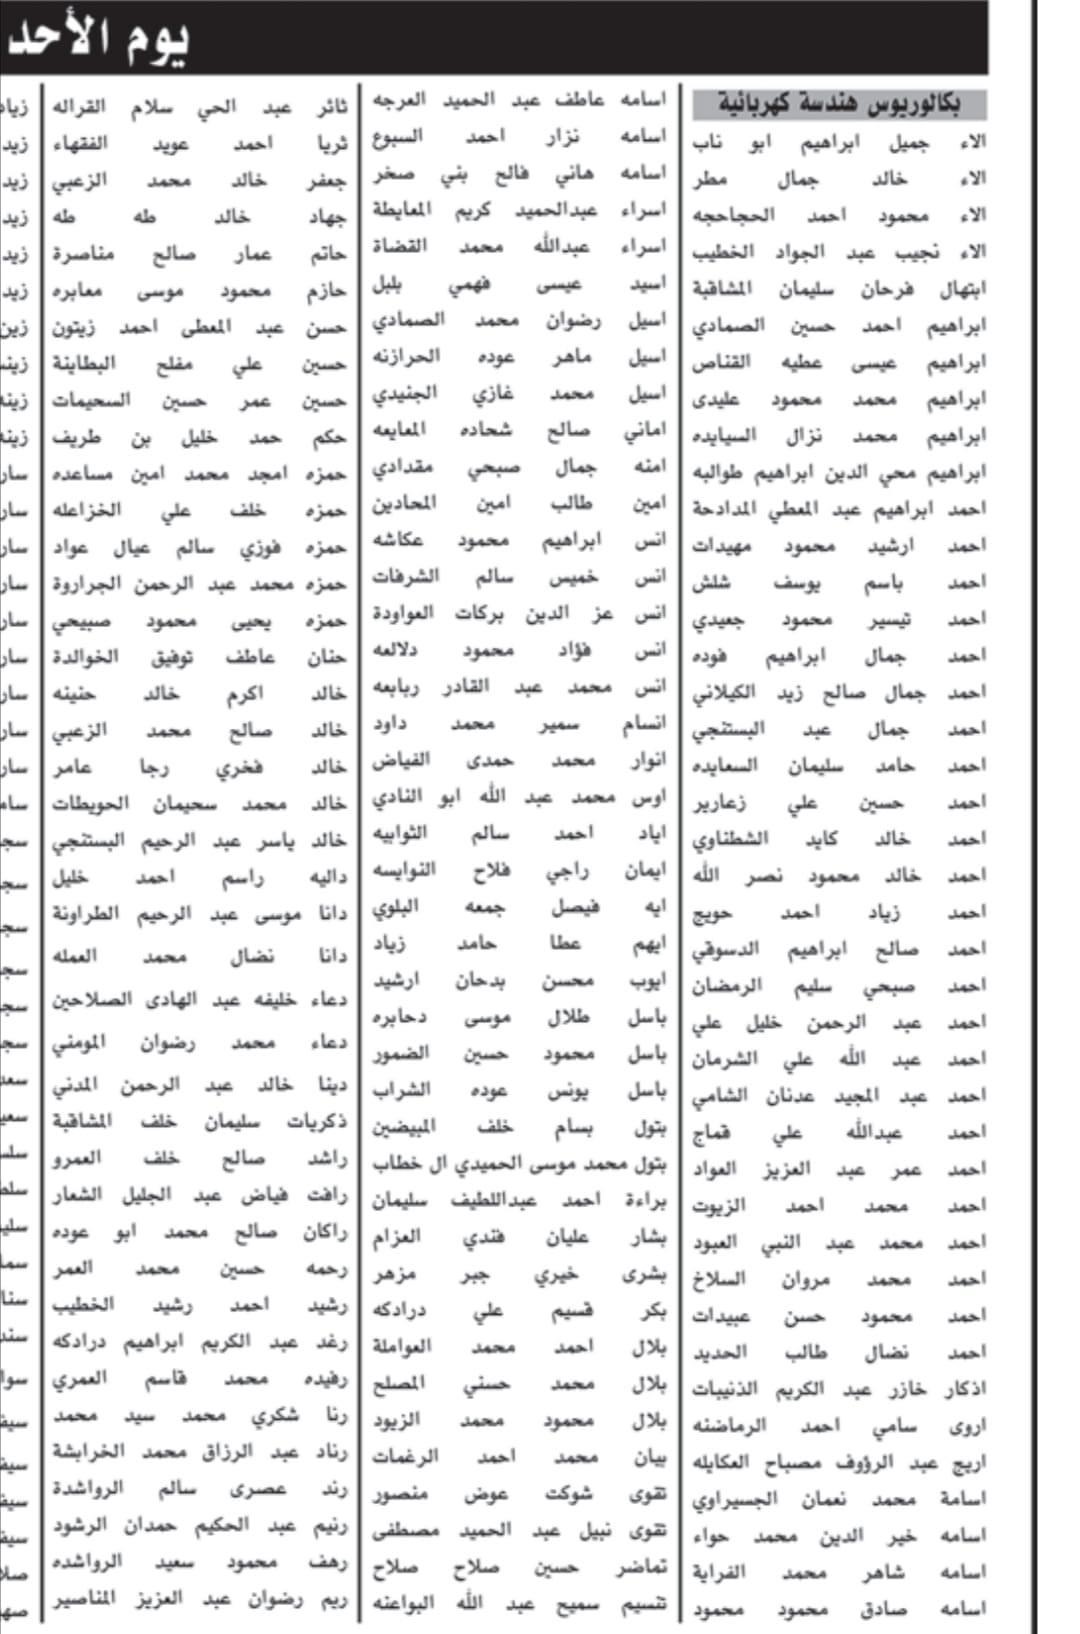 يوم الأحد
بكالوريوس هندسة كهربائية
الاء جميل ابراهيم ابو ناب
الاء خالد جمال مطر
الاء محمود احمد الحجاحجه
الاء نجيب عبد الجواد الخطيب
ابتهال فرحان سليمان المشاقبة
ابراهيم احمد حسين الصمادي
ابراهيم عيسى عطيه القناص
ابراهيم محمد محمود عليدى
ابراهيم محمد نزال السيايده
ابراهيم محي الدين ابراهيم طوالبه
احمد ابراهيم عبد المعطي المدادحة
احمد ارشيد محمود مهيدات
احمد باسم يوسف شلش
احمد تيسير محمود جعيدي
احمد جمال ابراهيم فوده
احمد جمال صالح زيد الكيلاني
احمد جمال عبد البستنجي
احمد حامد سليمان السعايده
احمد حسين علي زعارير
احمد خالد كايد الشطناوي
احمد خالد محمود نصر الله
احمد زياد احمد حويج
احمد صالح ابراهيم الدسوقي
احمد صبحي سليم الرمضان
احمد عبد الرحمن خليل علي
احمد عبد الله علي الشرمان
احمد عبد المجيد عدنان الشامي
احمد عبدالله علي قماج
احمد عمر عبد العزيز العواد
احمد محمد احمد الزيوت
احمد محمد عبد النبي العبود
احمد محمد مروان السلاخ
احمد محمود حسن عبيدات
احمد نضال طالب الحديد
اذكار خازر عبد الكريم الذنيبات
اروى سامي احمد الرماضنه
اريج عبد الرؤوف مصباح العكايله
اسامة محمد نعمان الجسيراوي
اسامه خير الدين محمد حواء
اسامه شاهر محمد الفراية
اسامه صادق محمود محمود
اسامه عاطف عبد الحميد العرجه
اسامه نزار احمد السبوع
اسامه هاني فالح بني صخر
اسراء عبدالحميد كريم المعايطة
اسراء عبدالله محمد القضاة
اسيد عيسى فهمي بلبل
اسيل رضوان محمد الصمادي
اسيل ماهر عوده الحرازنه
اسيل محمد غازي الجنيدي
اماني صالح شحاده المعايعه
امنه جمال صبحي مقدادي
امين طالب امين المحادين
انس ابراهيم محمود عكاشه
انس خميس سالم الشرفات
انس عز الدين بركات العواودة
انس فؤاد محمود دلالعه
انس محمد عبد القادر ربابعه
انسام سمير محمد داود
انوار محمد حمدى الفياض
اوس محمد عبد الله ابو النادي
اياد احمد سالم الثوابيه
ايمان راجي فلاح النوايسه
ايه فيصل جمعه البلوي
ايهم عطا حامد زياد
ايوب محسن بدحان ارشيد
باسل طلال موسى دحابره
باسل محمود حسين الضمور
باسل يونس عوده الشراب
بتول بسام خلف المبيضين
بتول محمد موسى الحميدي ال خطاب
براءة احمد عبداللطيف سليمان
بشار عليان فندي العزام
بشرى خيري جبر مزهر
بكر قسيم علي درادكه
بلال احمد محمد العواملة
بلال محمد حسني المصلح
بلال محمود محمد الزيود
بيان محمد احمد الرغمات
تقوى شوكت عوض منصور
تقوى نبيل عبد الحميد مصطفى
تماضر حسين صلاح صلاح
تنسيم سميح عبد الله البواعنه
ثائر عبد الحي سلام القراله
ثريا احمد عويد الفقهاء
جعفر خالد محمد الزعبي
جهاد خالد طه طه
حاتم عمار صالح مناصرة
حازم محمود موسى معابره
حسن عبد المعطى احمد زيتون
حسين علي مفلح البطاينة
حسين عمر حسين السحيمات
حكم حمد خليل بن طريف
حمزه امجد محمد امين مساعده
حمزه خلف علي الخزاعله
حمزه فوزي سالم عيال عواد
حمزه محمد عبد الرحمن الجراروة
حمزه يحيى محمود صبيحي
حنان عاطف توفيق الخوالدة
خالد اكرم خالد حنينه
خالد صالح محمد الزعبي
خالد فخري رجا عامر
خالد محمد سحيمان الحويطات
خالد ياسر عبد الرحيم البستنجي
داليه راسم احمد خليل
دانا موسى عبد الرحيم الطراونة
دانا نضال محمد العمله
دعاء خليفه عبد الهادى الصلاحين
دعاء محمد رضوان المومني
دينا خالد عبد الرحمن المدني
ذكريات سليمان خلف المشاقبة
راشد صالح خلف العمرو
رافت فياض عبد الجليل الشعار
راكان صالح محمد ابو عوده
رحمه حسين محمد العمر
رشيد احمد رشيد الخطيب
رغد عبد الكريم ابراهيم درادكه
رفيده محمد قاسم العمري
رنا شكري محمد سيد محمد
رناد عبد الرزاق محمد الخرابشة
رند عصرى سالم الرواشدة
رنيم عبد الحكيم حمدان الرشود
رهف محمود سعيد الرواشده
ريم رضوان عبد العزيز المناصير